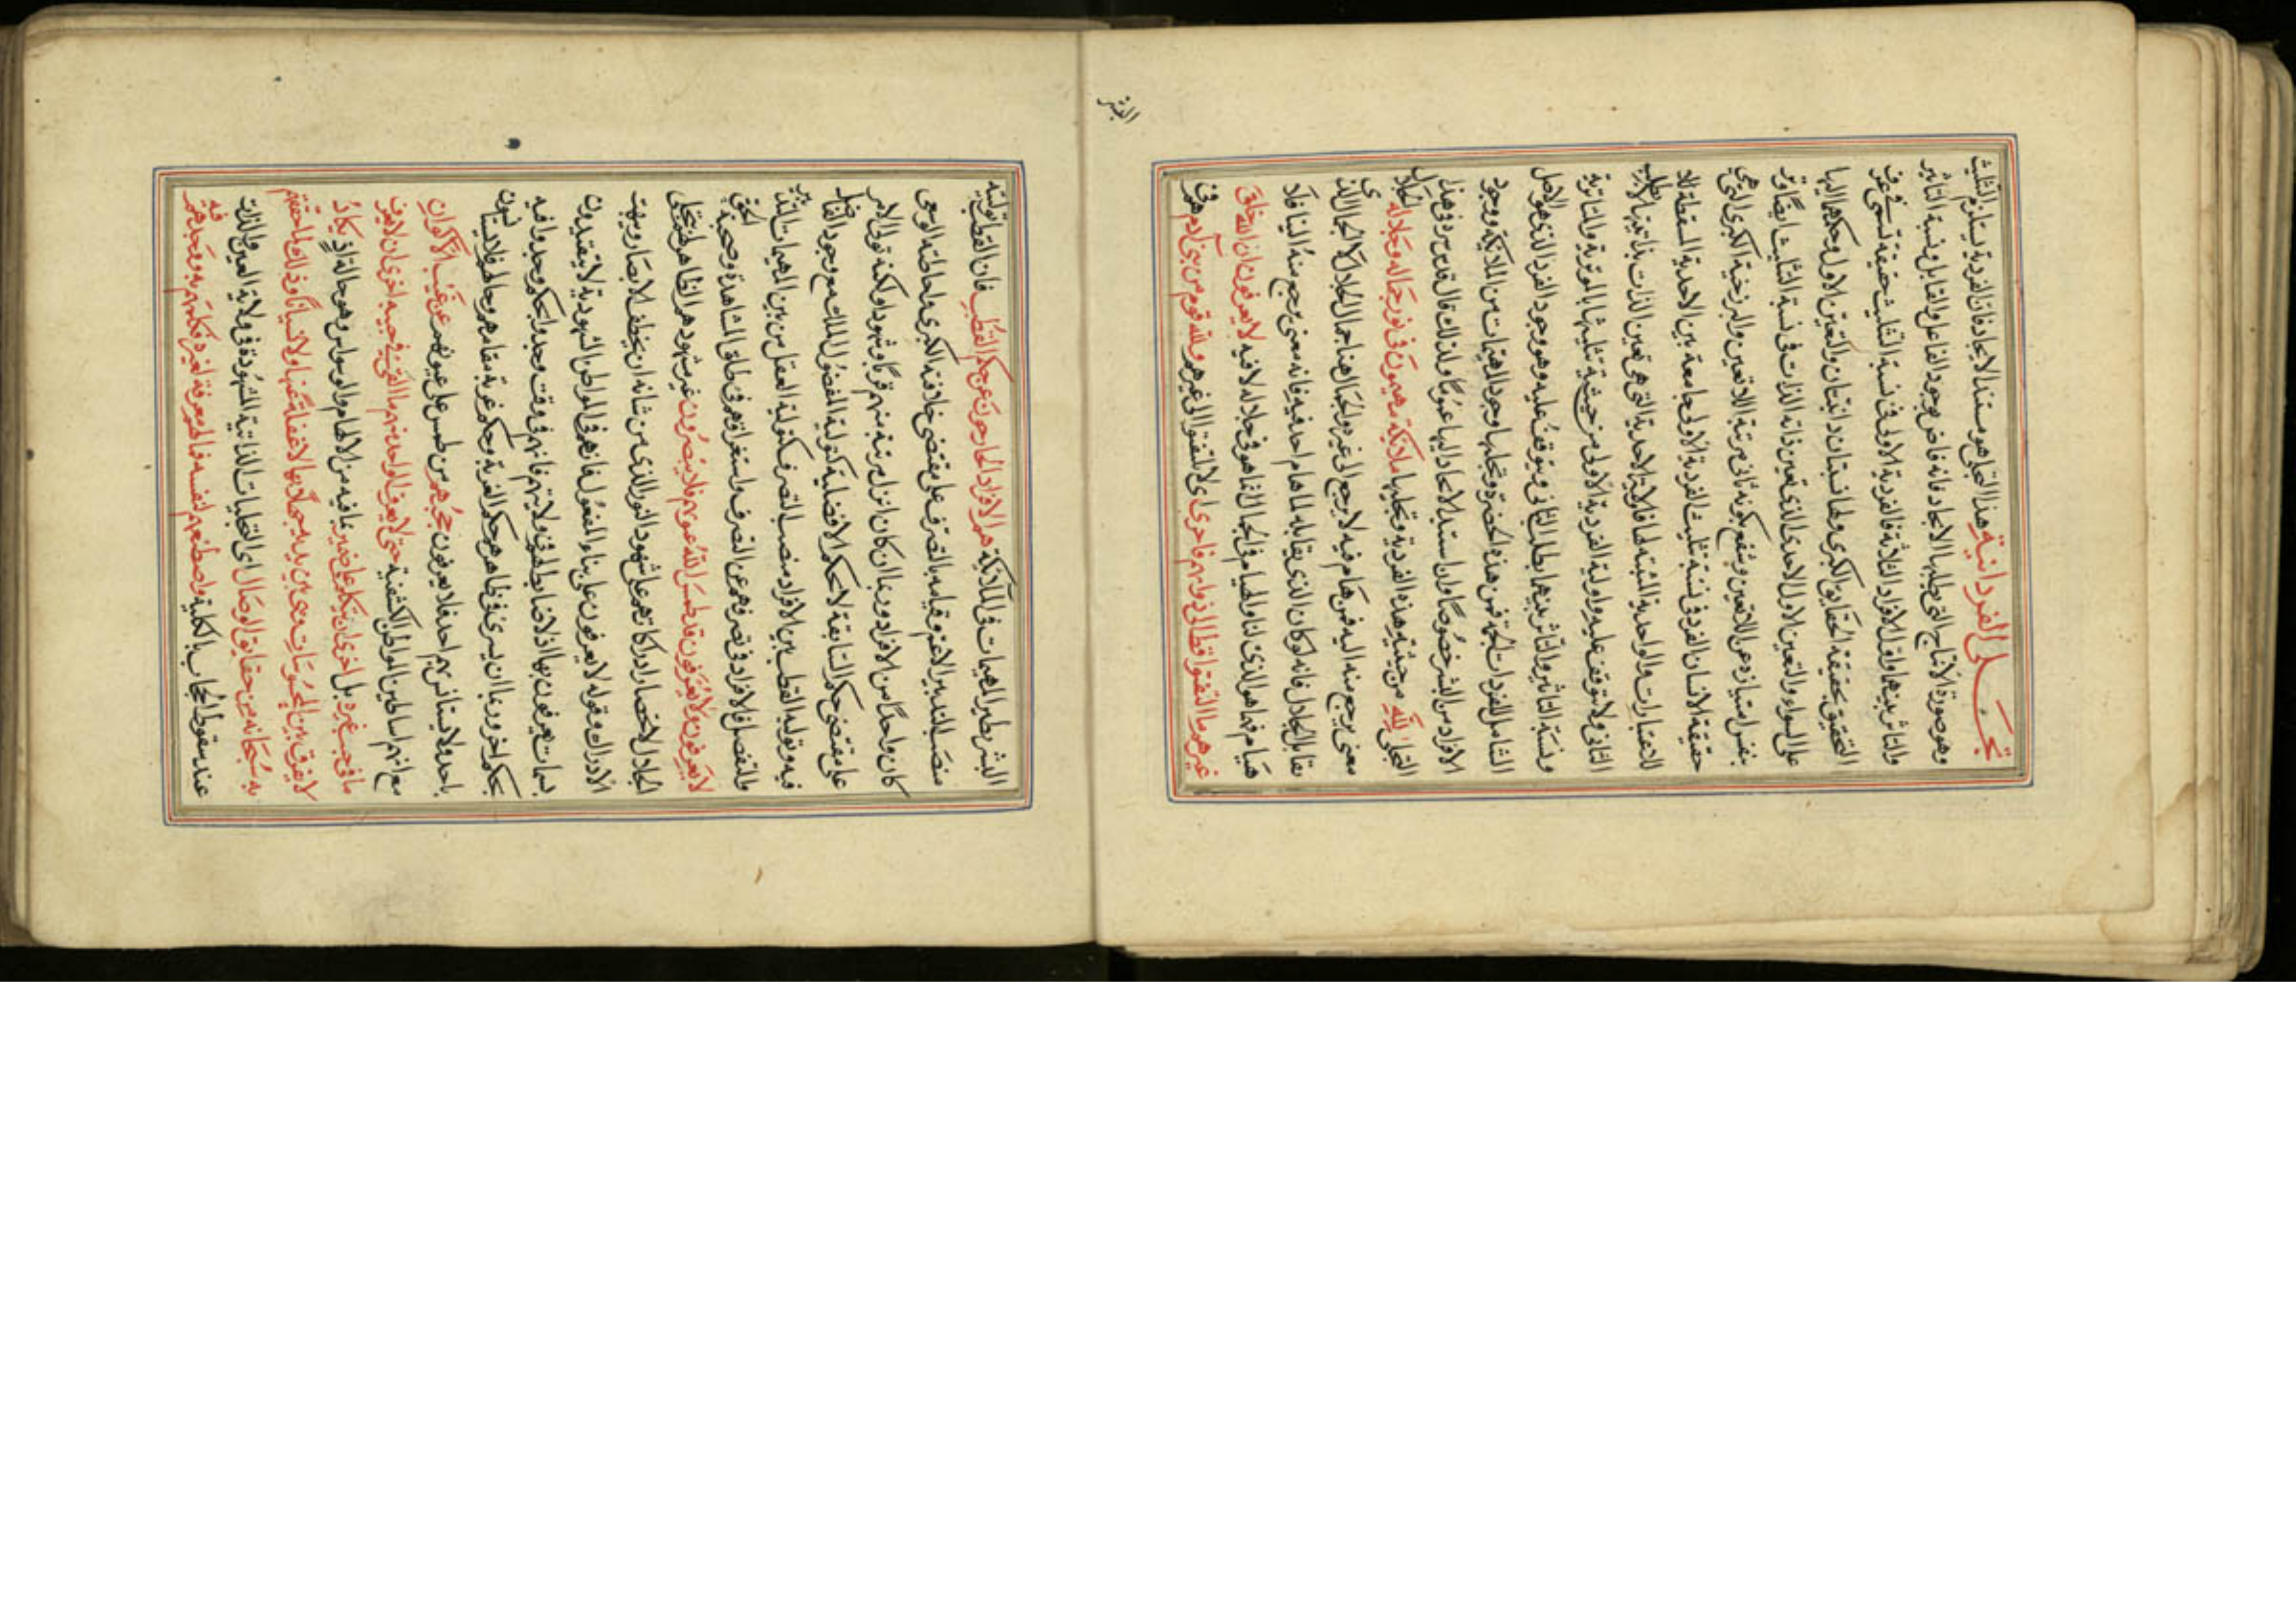 تجلى الفردانية هذا التجلى هو مستند الايجاد فان الفردية يستلزم التثليث
وهو صورة الانتاج التى يطلبها الايجاد فانه فاض بوجود الفاعل والقابل ونسبة التاثير
والتاثر بينهما واول الافراد الثلاثة فالفردية الاولى فى نسبة التثليث حقيقة تسمى فى عرف
التحقيق بحقيقة الحقايق الكبرى ولها نسبتان ذاتيتان والتعين الاول وحكمهما اليها
على السواء والتعين الاول الاحدى الذى تعين ذاته الذات فى نسبة التثليث ايضا وتر
بنفس امتيازه عن اللاتعين وشفع بكونه ثانى مرتبة اللاتعين والبرزخية الكبرى التى هى
حقيقة الانسان الفرد فى نسبة تثليث الفردية الاولى جامعة بين الاحدية المسقطة للا
للاعتبارات والواحدية المثبتة لها فاولية الاحدية التى هى تعين الذات بذاتيتها لا يطلب
الثانى ولا يتوقف عليه واولية الفردية الاولى من حيثية تثليثها بالموثرية والمتاثرية
ونسبة التاثير والتاثر بينهما يطلب الثانى ويتوقف عليه وهو وجود الفرد الذى هو الاصل
الشامل للمفردات الجمة فمن هذه الحضرة وتجليها وجود المهيمات من الملائكة ووجود
الافراد من البشر خصوصا وان استند الايجاد اليها عموما ولذلك قال قدس سره فى هذا
التجلى لله من حيثية هذه الفردية وتجليها ملائكة مهيمون فى نور جماله وجلاله الجلال
معنى يرجع منه اليه فمن هام فيه لا يرجع الى غيره والجمال هنا جمال الجلال لا الجمال الذى
يقابل الجلال فانه لو كان الذى يقابله لما هام احد فيه فانه معنى يرجع منه الينا فلا
هيام فيما هو الذى لنا والهيام فى الجمال انما هو فى جلاله لا فيه لا يعرفون ان الله خلق
غيرهم ما التفتوا قط الى ذواتهم فاحرى اى لا يلتفتوا الى غيرهم ولله قوم من بنى آدم هم فى
البشر
البشر نظير المهيمات فى الملائكة هم الافراد الخارجون عن حكم القطب فان القطب توليته
منصب التدبير الاعم وقيامه بالتصرف على مقتضى خلافته الكبرى واحاطته الوسعى
كان واحدا من الافراد وربما ان كان انزل مرتبة منهم قربا وشهودا ولكنه تولى الامر
على مقتضى حكم السابقة لا بحكم الافضلية كتولية المفضول الملك مع وجود الفاضل
فيه وتولية القطب من بين الافراد منصب التصرف كتولية العقل من بين المهيمات التدبير
والتفصيل فالافراد فى تصرفهم عن التصرف واستغراقهم فى طلق المشاهدة وصحبة الحق
لا يعرفون ولا يعرفون قد طمس الله عيونهم فلا يبصرون غير مشهودهم الظاهر لهم بتجلى
الجلال لانحصار ادراكاتهم على شهود النور الذى من شانه ان يخطف الابصار ويبهت
الادراك وقوله لا يعرفون على بناء المفعول فانهم فى المواطن الشهودية لا يتقيدون
بسمات يعرفون بها اذ لا ضابط لهم فى ولايتهم فانهم فى وقت وجدوا بحكم وجدوا فيه
بحكم اخر وربما ان يسرى فى ظاهرهم حكم الغربة وحكم غربة مقامهم وحالهم فلا يانسون
باحد ولا يستانس بهم احد فلا يعرفون حجبهم من طمس على عيونهم عن غيب الاكوان
مع انهم اساطين المواطن الكشفية حتى لا يعرف الواحد منهم ما القى فى جيبه احرى ان لا يعرف
ما فى جيب غيره بل احرى ان يتكلم على ضمير غافيه من الالهام والوسواس وهو حالتئذ يكاد
لا يفرق بين المحسوسات وهى بين يديه جهلا بها لا غفلة عنها ولا نسيانا وذلك لما حققهم
به سبحانه من حقايق الوصال اى التجليات الذاتية المشهودة فى ولاية العين والذات
عند سقوط الحجاب بالكلية واصطنعهم لنفسه فما لهم معرفة بغيره فكلهم به ووجدهم فيه